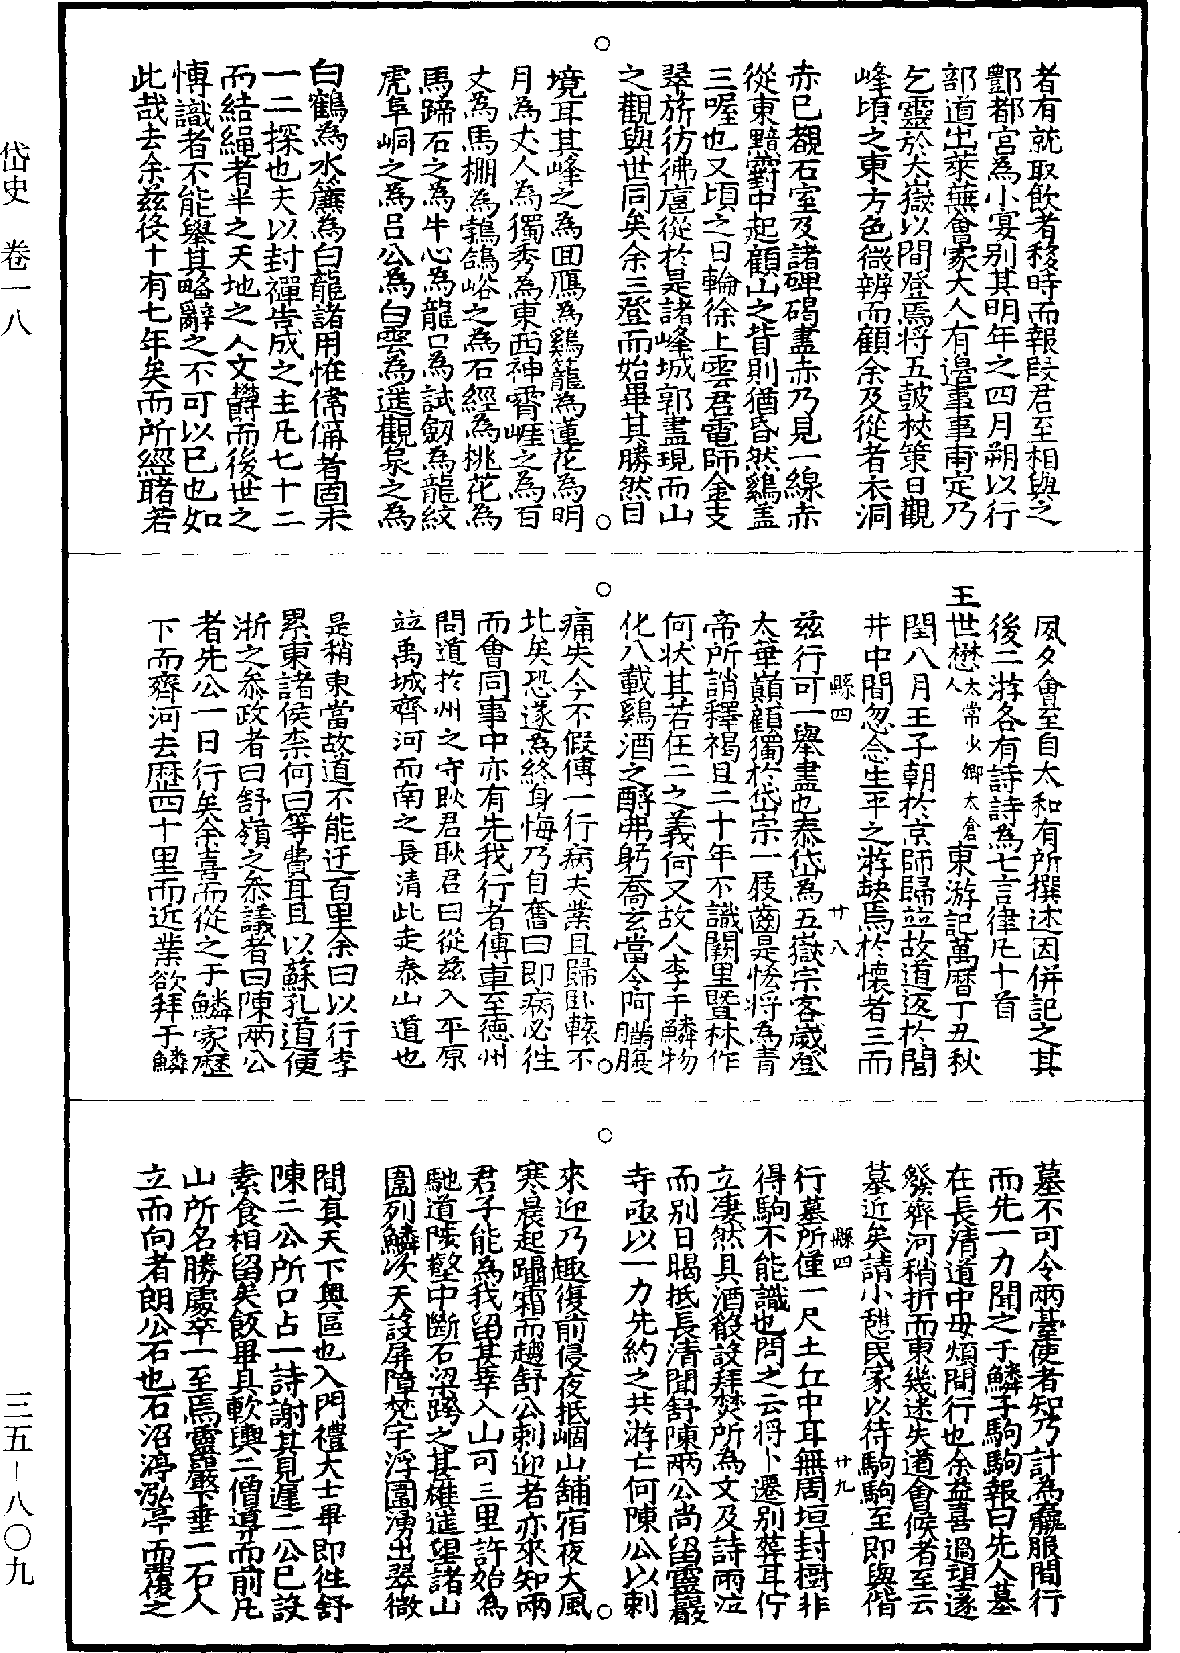 岱史　卷一八
三五－八〇九
者有就取飲者移時而報段君至相與之
酆都宮為小宴別其明年之四月朔以行
部道出萊蕪會家大人有邊事事甫定乃
乞靈於大嶽以間登焉將五鼓杖策日觀
峰頃之東方色微辨而顧余及從者衣洞
赤已觀石室及諸碑碣盡赤乃見一線赤
從東黯䨴中起顧山之背則猶昏然鷄盖
三喔也又頃之日輪徐上雲君電師金支
翠旂彷彿扈從於是諸峰城郭盡現而山
之觀與世同矣余三登而始畢其勝然目
境耳其峰之為囬鴈為鷄籠為蓮花為明
月為丈人為獨秀為東西神霄崕之為百
丈為馬棚為鵓鴿峪之為石經為桃花為
馬蹄石之為牛心為龍口為試劒為龍紋
虎阜峒之為呂公為白雲為遥觀泉之為
白鶴為水簾為白龍諸用恠偉偁者固未
一二探也夫以封禪告成之主凡七十二
而結繩者半之天地之人文欝而後世之
愽識者不能舉其略辭之不可以已也如
此哉去余兹役十有七年矣而所經睹若
夙夕會至自太和有所撰述因併記之其
後二游各有詩詩為七言律凡十首
王世懋太常少卿太倉人東游記萬曆丁丑秋
閏八月王子朝於京師歸竝故道返於閭
井中間忽念生平之游缺焉於懷者三而
兹行可一舉盡也泰岱為五嶽宗客嵗登
太華巔顧獨於岱宗一屐齒是恡將為青
帝所誚釋褐且二十年不識闕里暨林作
何狀其若在三之義何又故人李于鱗物
化八載鷄酒之酹弗躬喬玄當令阿瞞腹
痛失今不假傳一行病夫業且歸臥轅不
北矣恐遂為終身悔乃自奮曰即病必往
而會同事中亦有先我行者傳車至德州
問道於州之守耿君耿君曰從兹入平原
竝禹城齊河而南之長清此走泰山道也
是稍東當故道不能迂百里余曰以行李
累東諸侯柰何曰等費耳且以蘇孔道便
浙之叅政者曰舒嶺之叅議者曰陳兩公
者先公一日行矣余喜而從之于鱗家歷
下而齊河去歷四十里而近業欲拜于鱗
墓不可令兩臺使者知乃計為羸服間行
而先一力聞之于鱗子駒駒報曰先人墓
在長清道中毋煩間行也余益喜過望遂
發齊河稍折而東幾迷失道會候者至云
墓近矣請小憩民家以待駒駒至即與偕
行墓所僅一尺土丘中耳無周垣封樹非
得駒不能識也問之云將卜遷別葬耳佇
立淒然具酒殽設拜焚所為文及詩兩泣
而別日暍抵長清聞舒陳兩公尚留靈巖
寺亟以一力先約之共游亡何陳公以刺
來迎乃趣復前侵夜抵崓山舖宿夜大風
寒晨起躡霜而趨舒公剌迎者亦來知兩
君子能為我留甚幸入山可三里許始為
馳道陵壑中斷石梁跨之甚雄遥望諸山
圍列鱗次天設屏障梵宇浮圖湧出翠微
間真天下奧區也入門禮大士畢即徃舒
陳二公所口占一詩謝其見遲二公已設
素食相留矣飯畢具軟輿二僧導而前凡
山所名勝處卒一至焉靈巖下垂一石人
立而向者朗公石也石沼渟泓亭而覆之
縣四
廿八
縣四
廿九